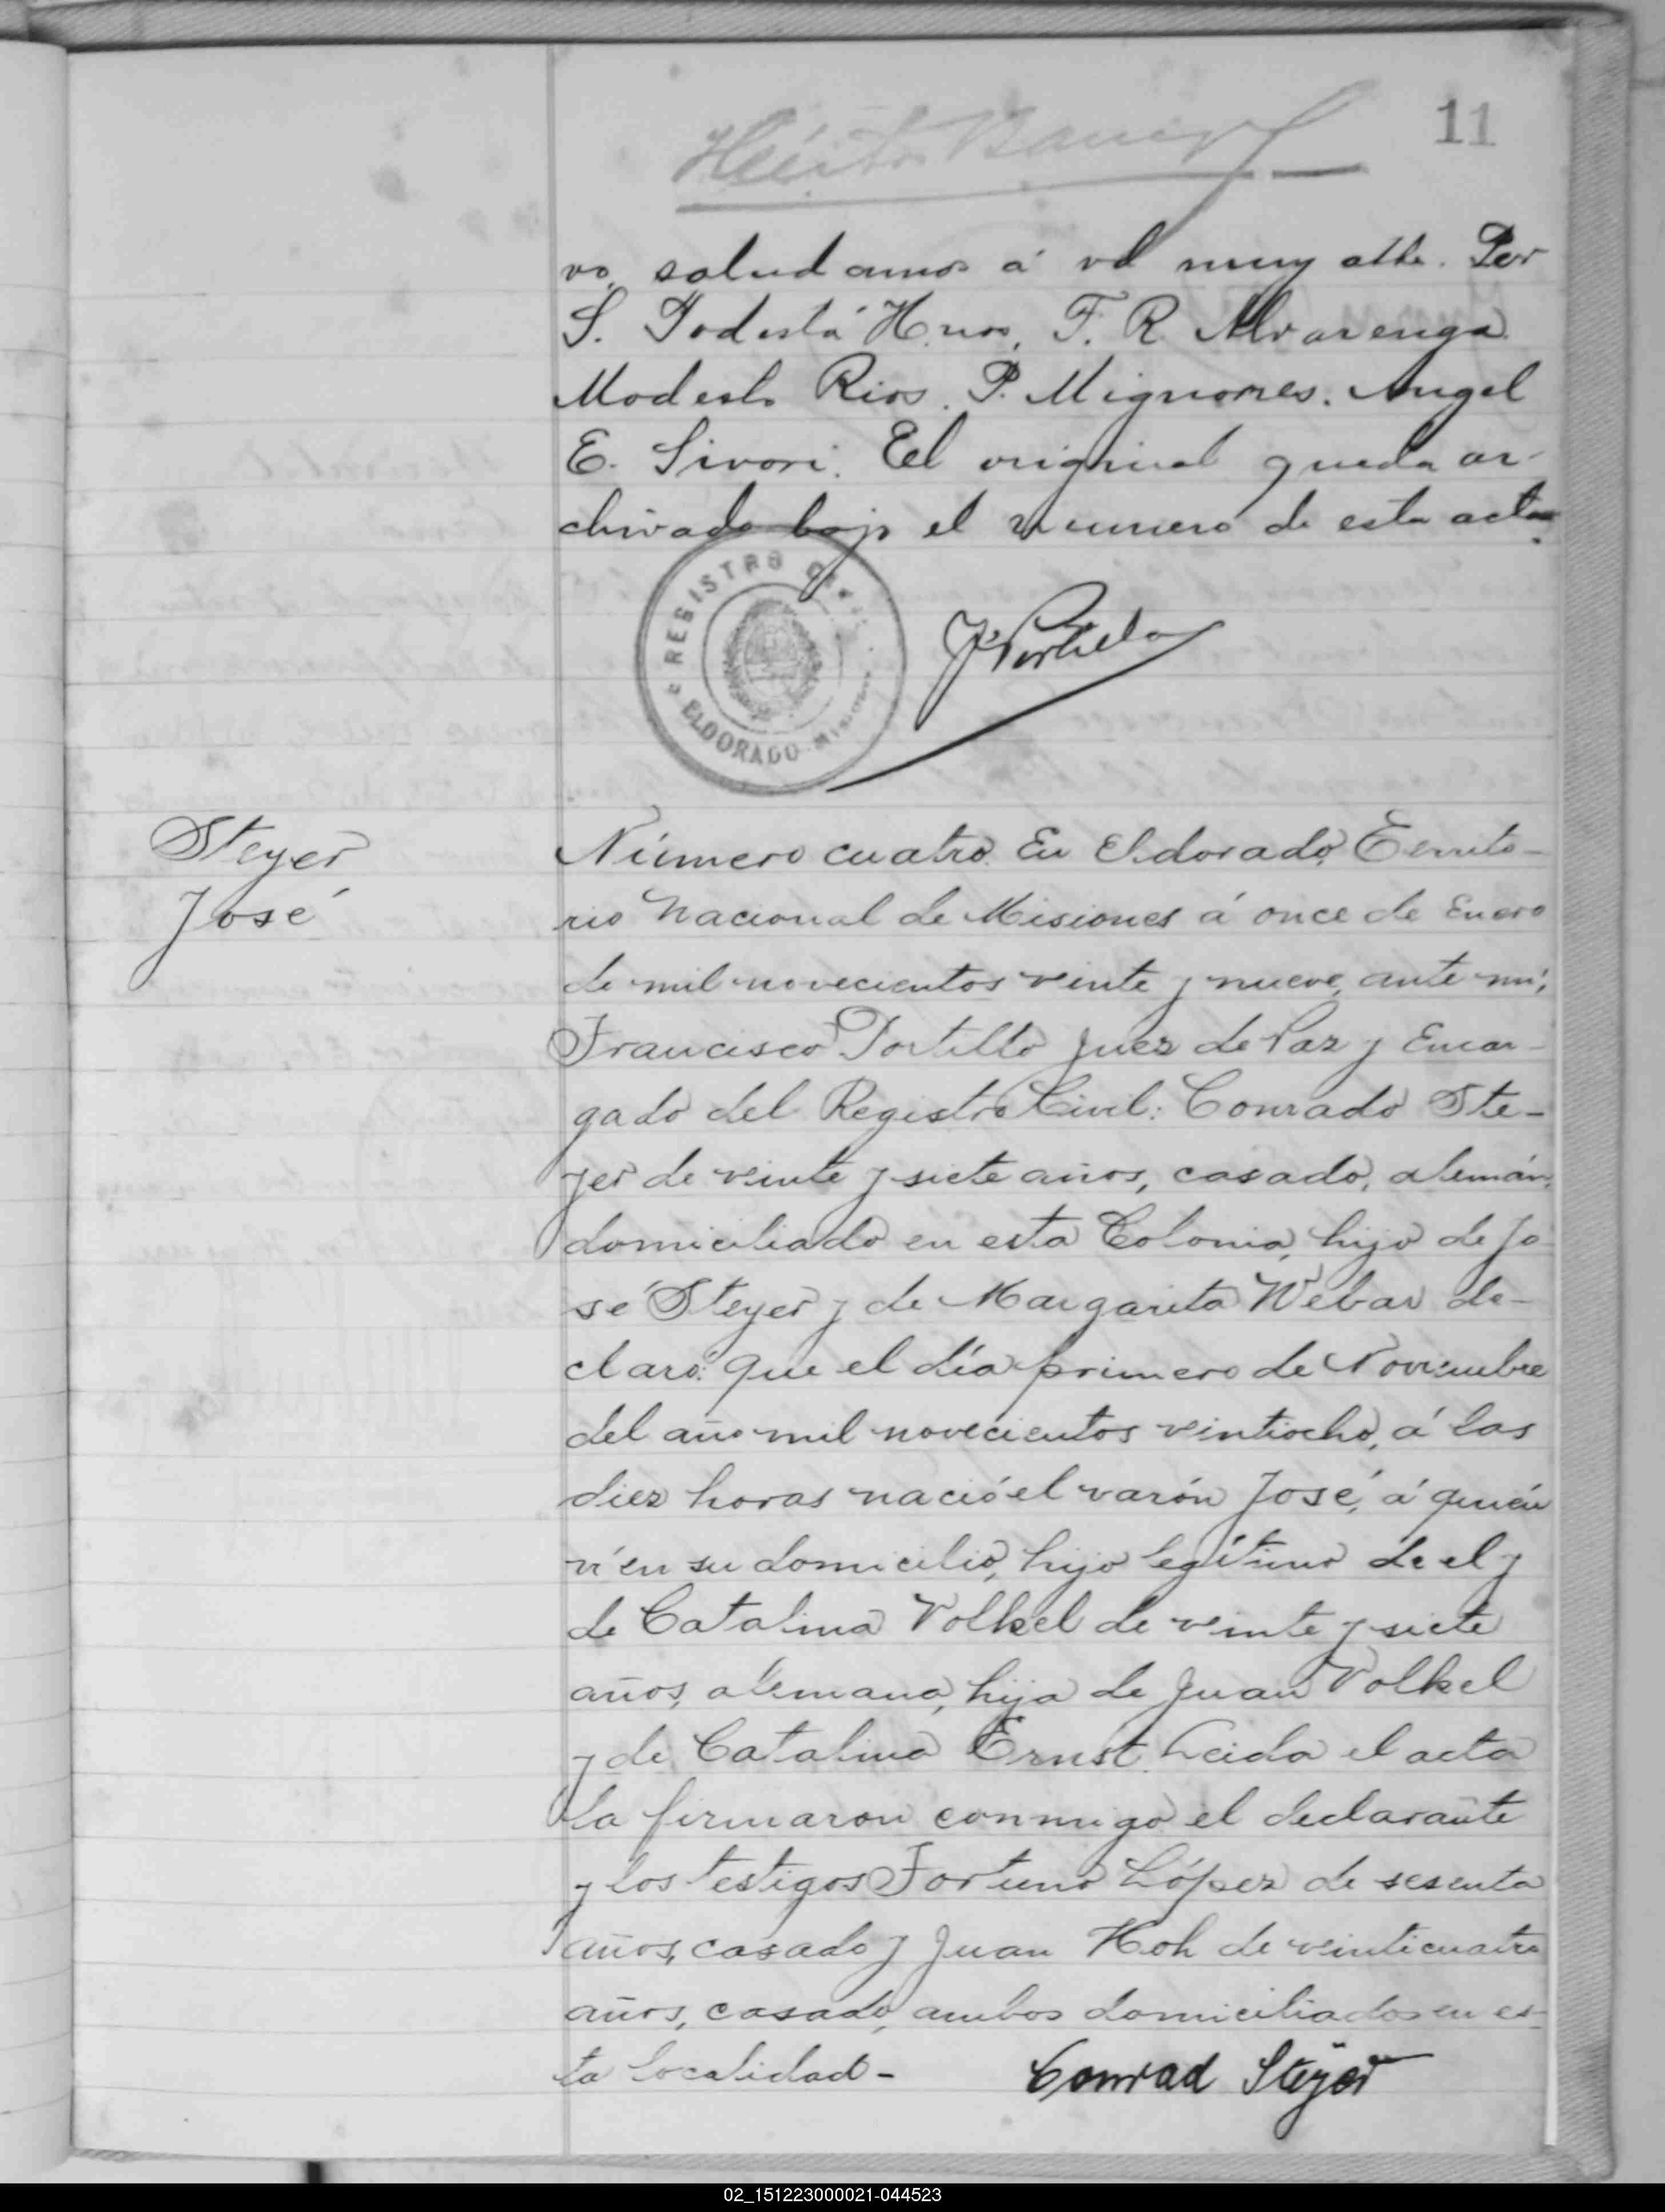 11
vo, saludamos á vd muy atte. Por
S. Podestá Hnos, F. R. Alvarenga
Modesto Rios. P. Mignones. Angel
E. Sivori. El original queda ar-
chivado bajo el numero de esta acta.
REGISTRO
ELDORADO Misiones
Steyer
José
Número cuatro. En Eldorado, Territo-
rio Nacional de Misiones á once de Enero
de mil novecientos veinte y nueve, ante mí,
Francisco Portillo Juez de Paz y Encar-
gado del Registro Civil: Conrado Ste-
yer de veinte y siete años, casado, alemán,
domiciliado en esta Colonia, hijo de Jo
sé Steyer y de Margarita Webar de-
claró: que el día primero de Noviembre
del año mil novecientos veintiocho, á las
diez horas nació el varón José, á quién
ví en su domicilio, hijo legítimo de el y
de Catalina Volkel de veinte y siete
años, alemana, hija de Juan Volkel
y de Catalina Ernst. Leida el acta
la firmaron conmigo el declarante
y los testigos Fortuno López de sesenta
años, casado y Juan Koh de veinticuatro
años, casado, ambos domiciliados en es-
ta localidad-
Conrad Steyer
02_151223000021-044523